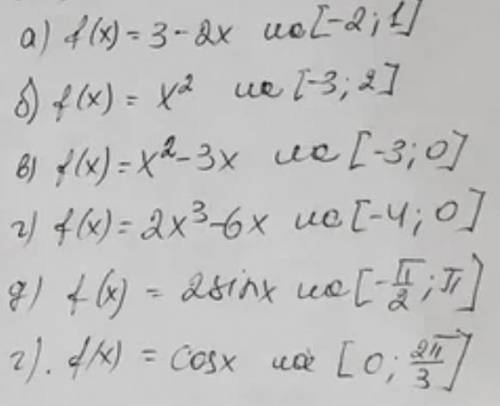 а) f(x) = 3 - 2x на [-2; 1]
б) f(x) = x² на [-3; 2]
в) f(x) = x² - 3x на [-3; 0]
г) f(x) = 2x³ - 6x на [-4; 0]
д) f(x) = 2sinx на [-π/2; π]
г). f(x) = cosx на [0; 2π/3]